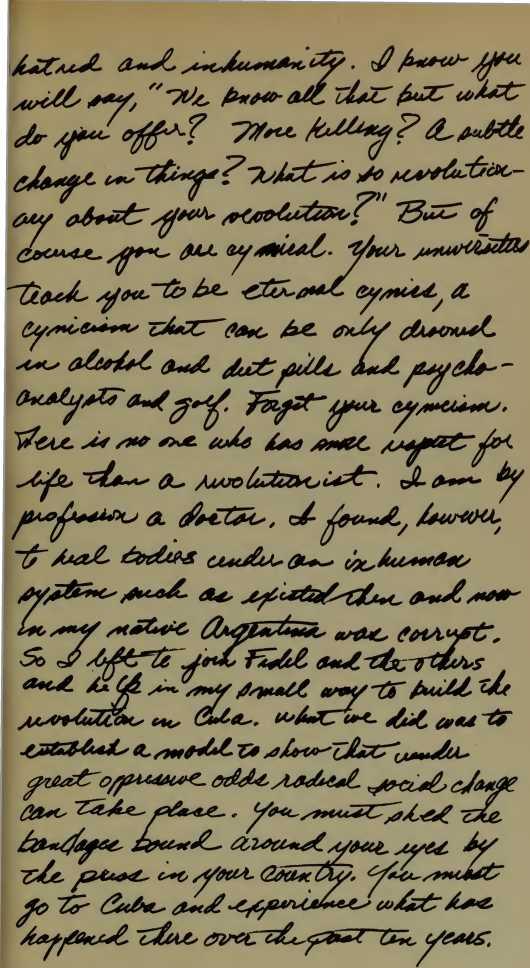 hatred and inhumanity. I know you
will say, "We know all that but what
do you offer? More killing? A subtle
change in things? What is so revolution-
ary about your revolution?" But of
course you are cynical. Your universities
teach you to be eternal cynics, a
cynicism that can be only drowned
in alcohol and diet pills and psycho-
analysts and golf. Forget your cynicism.
There is no one who has more respect for
life than a revolutionist. I am by
profession a doctor. I found, however,
to heal bodies under an inhuman
system such as existed then and now
in my native Argentina was corrupt.
So I left to join Fidel and the others
and help in my small way to build the
revolution in Cuba. What we did was to
establish a model to show that under
great oppressive odds radical social change
can take place. You must shed the
bandages bound around your eyes by
the press in your country. You must
go to Cuba and experience what has
happened there over the past ten years.